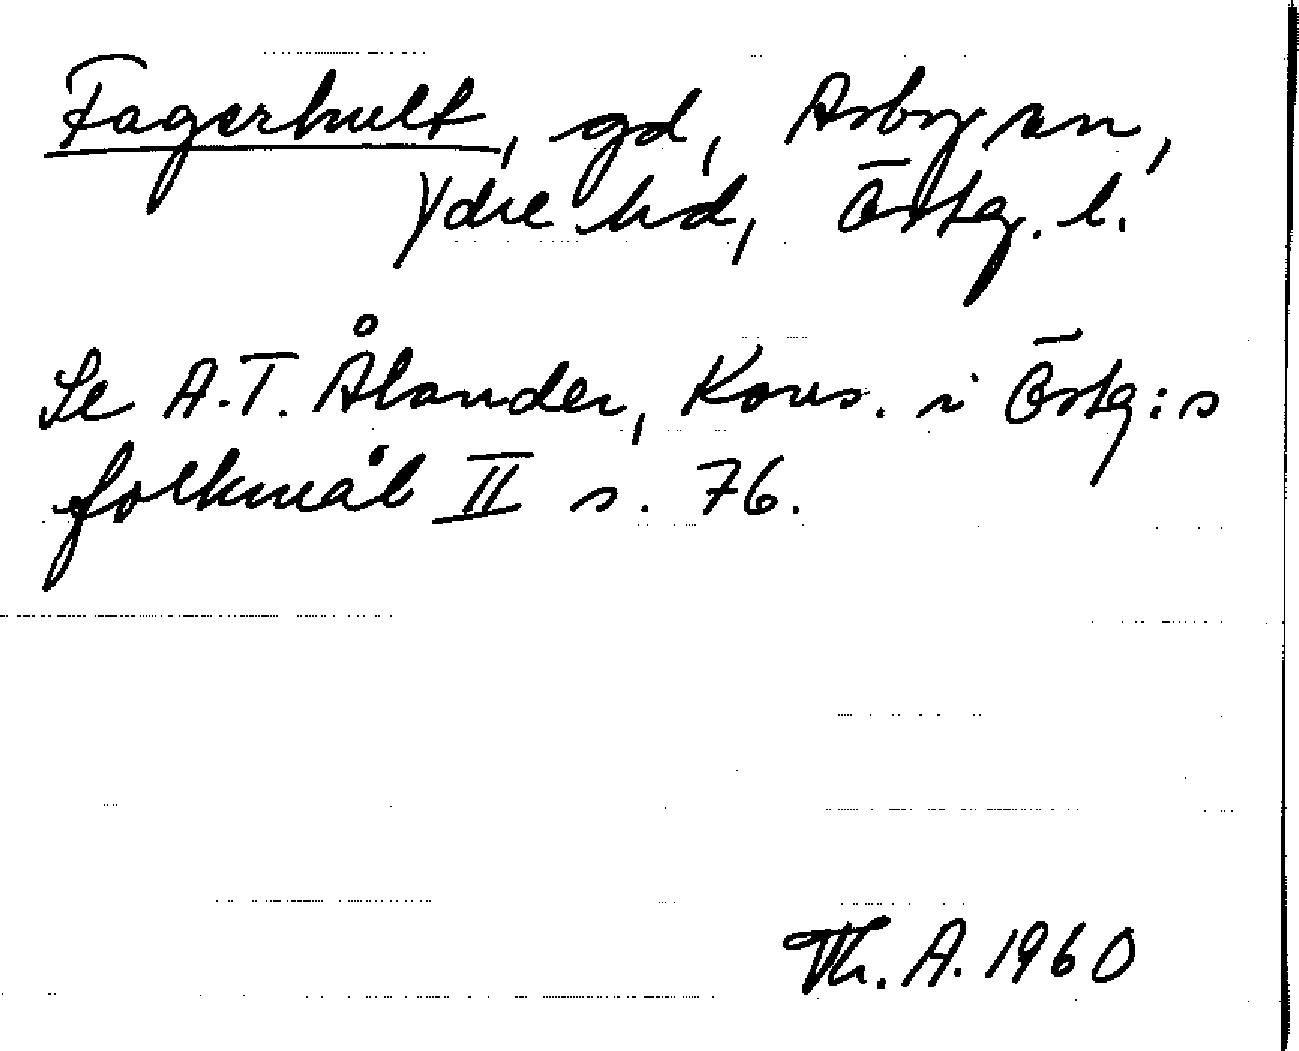 Fagerhult, gd, Asby sn,
Ydre hd, Östg. l.
Se A.T. Ålander, Kons. i Östg:s
folkmål II s. 76.
Th. A. 1960